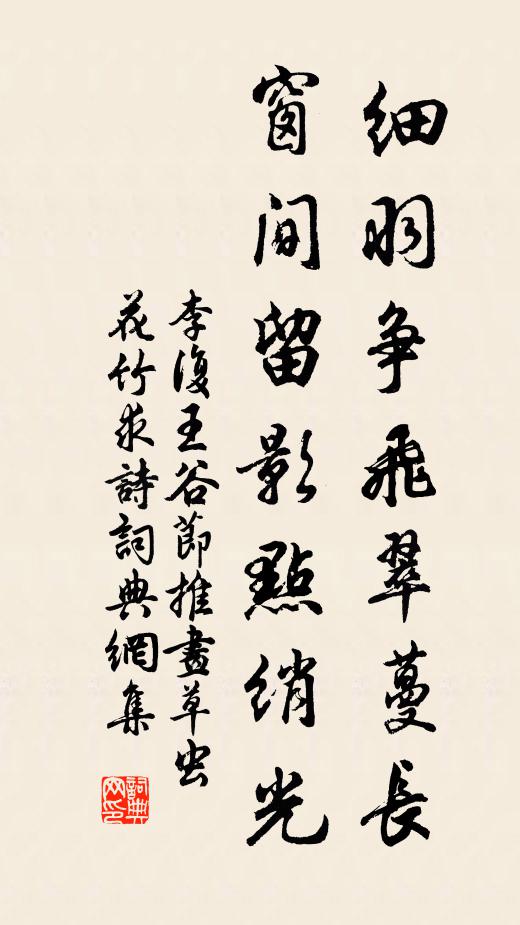 細羽争飛翠蔓長
窗間留影點綃光
李復王谷節推畫草虫
花竹求詩詞典網集
詞典
网印